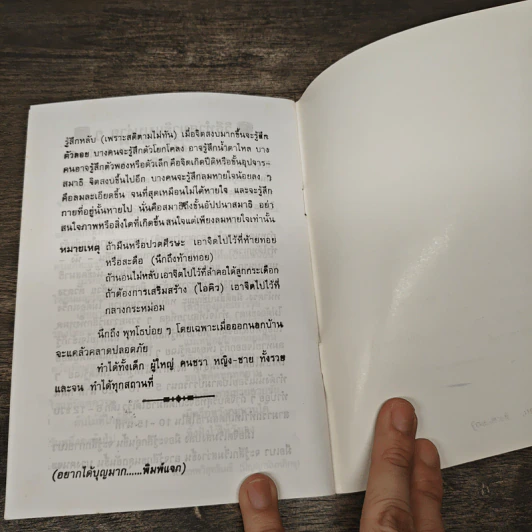 รู้สึกหลับ (เพราะสติตามไม่ทัน) เมื่อจิตสงบมากขึ้นจะรู้สึก
ตัวลอย บางคนจะรู้สึกตัวโยกโคลง อาจรู้สึกน้ำตาไหล บาง
คนอาจรู้สึกตัวพองหรือตัวเล็ก คือจิตเกิดปีติหรือขั้นอุปจาร-
สมาธิ จิตสงบขึ้นไปอีก บางคนจะรู้สึกลมหายใจน้อยลง ๆ
คือลมละเอียดขึ้น จนที่สุดเหมือนไม่ได้หายใจ และจะรู้สึก
กายที่อยู่นั้นหายไป นั่นคือสมาธิถึงขั้นอัปปนาสมาธิ อย่า
สนใจภาพหรือสิ่งใดที่เกิดขึ้น สนใจแต่เพียงลมหายใจเท่านั้น
หมายเหตุ ถ้ามึนหรือปวดศีรษะ เอาจิตไปไว้ที่ท้ายทอย
หรือสะดือ (นึกถึงท้ายทอย)
ถ้านอนไม่หลับ เอาจิตไปไว้ที่ลำคอใต้ลูกกระเดือก
ถ้าต้องการเสริมสร้าง (ไอคิว) เอาจิตไปไว้ที่
กลางกระหม่อม
นึกถึง พุทโธบ่อย ๆ โดยเฉพาะเมื่อออกนอกบ้าน
จะแคล้วคลาดปลอดภัย
ทำได้ทั้งเด็ก ผู้ใหญ่ คนชรา หญิง-ชาย ทั้งรวย
และจน ทำได้ทุกสถานที่
(อยากได้บุญมาก......พิมพ์แจก)